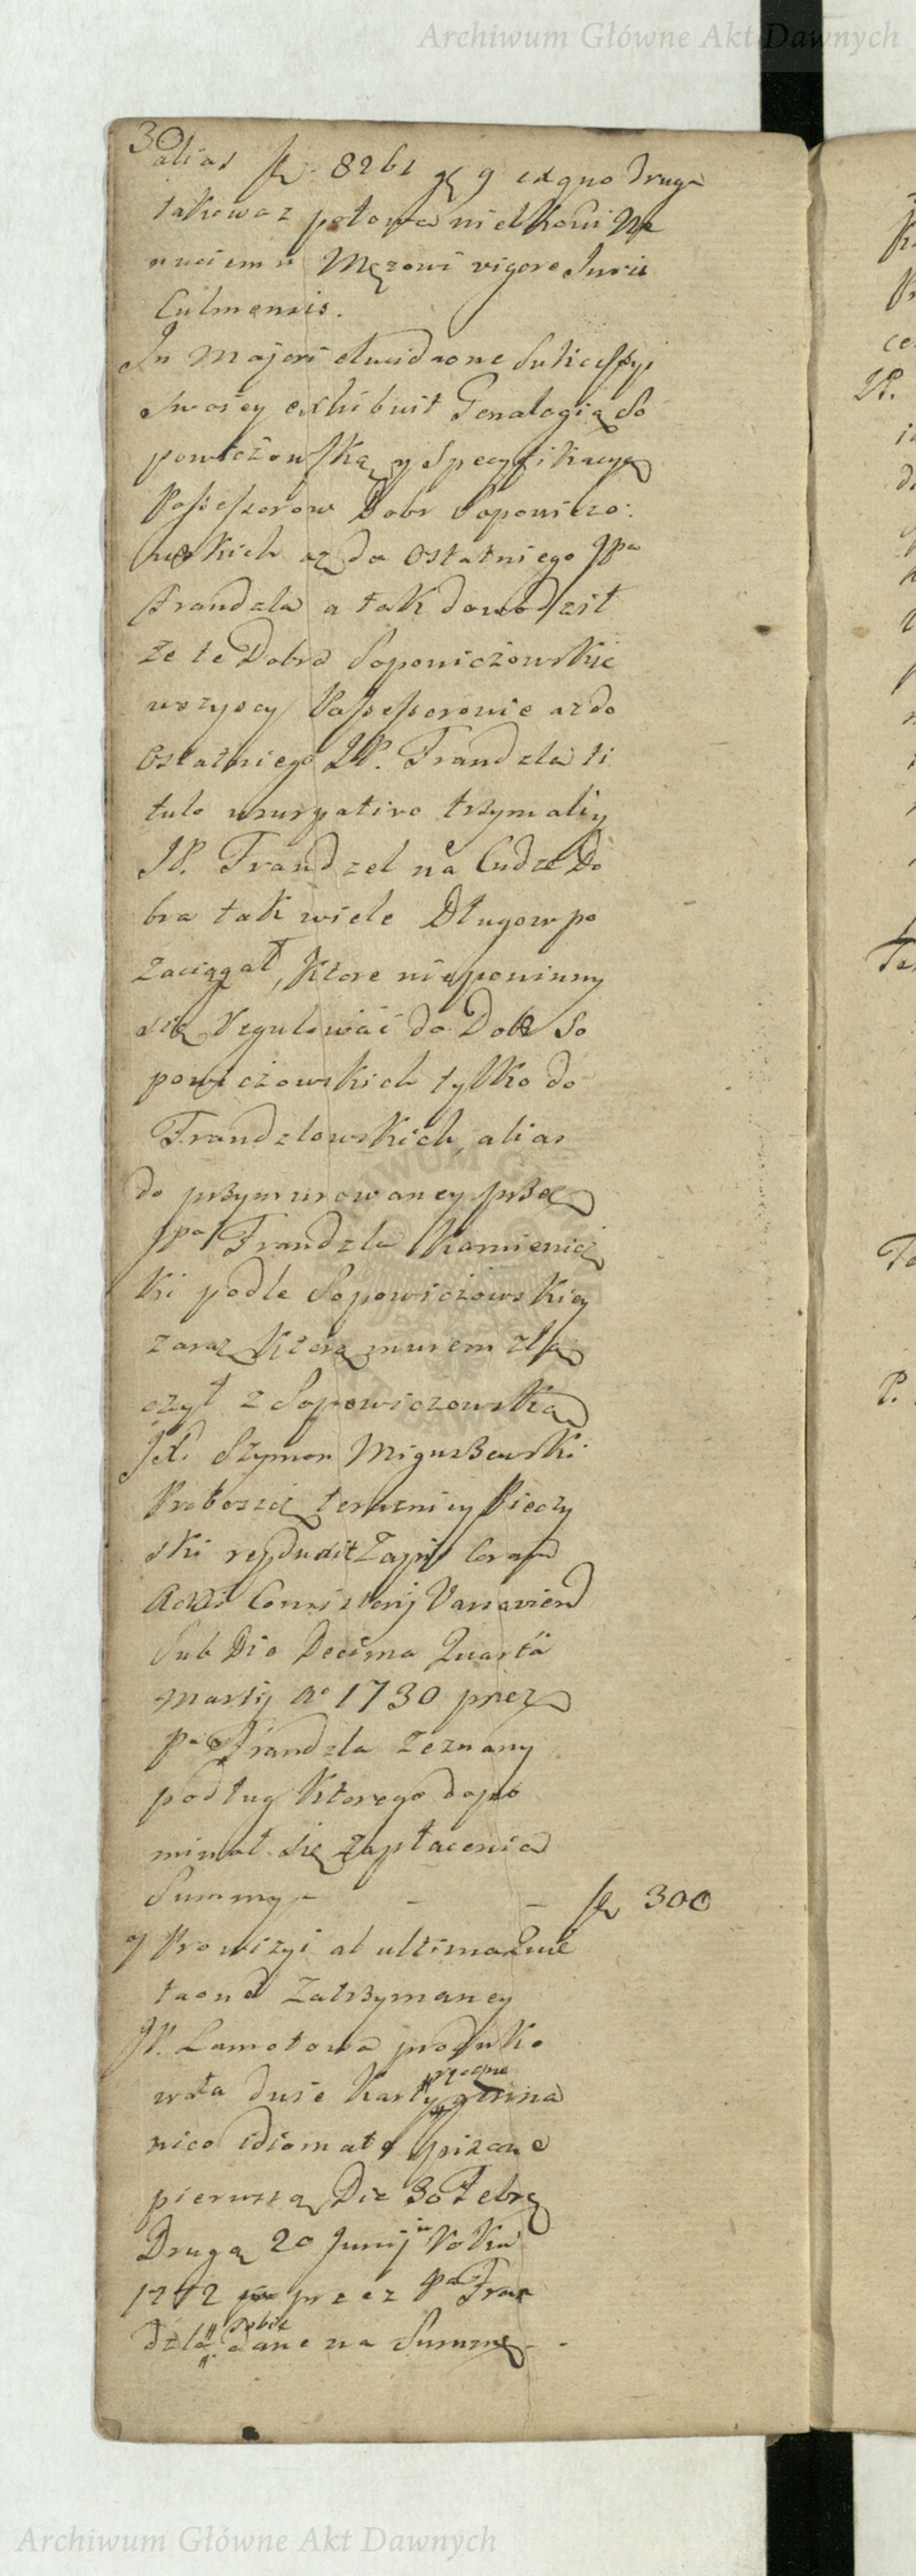 Archiwum Główne Akt Dawnych
30
alias fl. 8261 gr 9 ex quo druga
takowaz połowa nieboszczykowi
Mężowi vigore Juris
Culmensis.
In Majori elucidaone Sukcessyi
swoiey exhibuit Genalogią So
powiczowską y Specyfikacyą
Possessorow Dobr Sopowiczo:
wskich aż do Ostatniego JPa
Frandzla a tak dowodził
że te Dobra Sopowiczowskie
wszyscy Possessorowie aż do
Ostatniego JP. Frandzla ti
tulo usurpativo trzymali y
JP. Frandzel na Cudze Do
bra tak wiele Długow po
zaciągał, Ktore niepowinny
się Regulować do Dobr So
powiczowskich tylko do
Frandzlowskich, alias
do przymurowaney przez
JPa Frandzla Kamienicz
ki podle Sopowiczowskiey
zaraz Ktorą murem złą
czył z Sopowiczowską
JX. Szymon Miguszewski
Proboszcz terazniey
ski Zapis Coram
Actis Consistorij Varsavien
Sub Die Decima Quarta
Martij Ao 1730 przez
Pa Frandzla zeznany
podług Ktorego dopo
minał się zapłacenia
Summy - - - fl 300
y Prowizyi ab ultima Quie
taone zatrzymaney
JP. Lamotowa produko
wała dwie Karty ręczne
nico idiomate pisane
pierwszą Die 30 Febr
Drugą 20 Junij in Roku
1712 przez Pa Fran
dzla sobie dane na Summę - -
Archiwum Główne Akt Dawnych